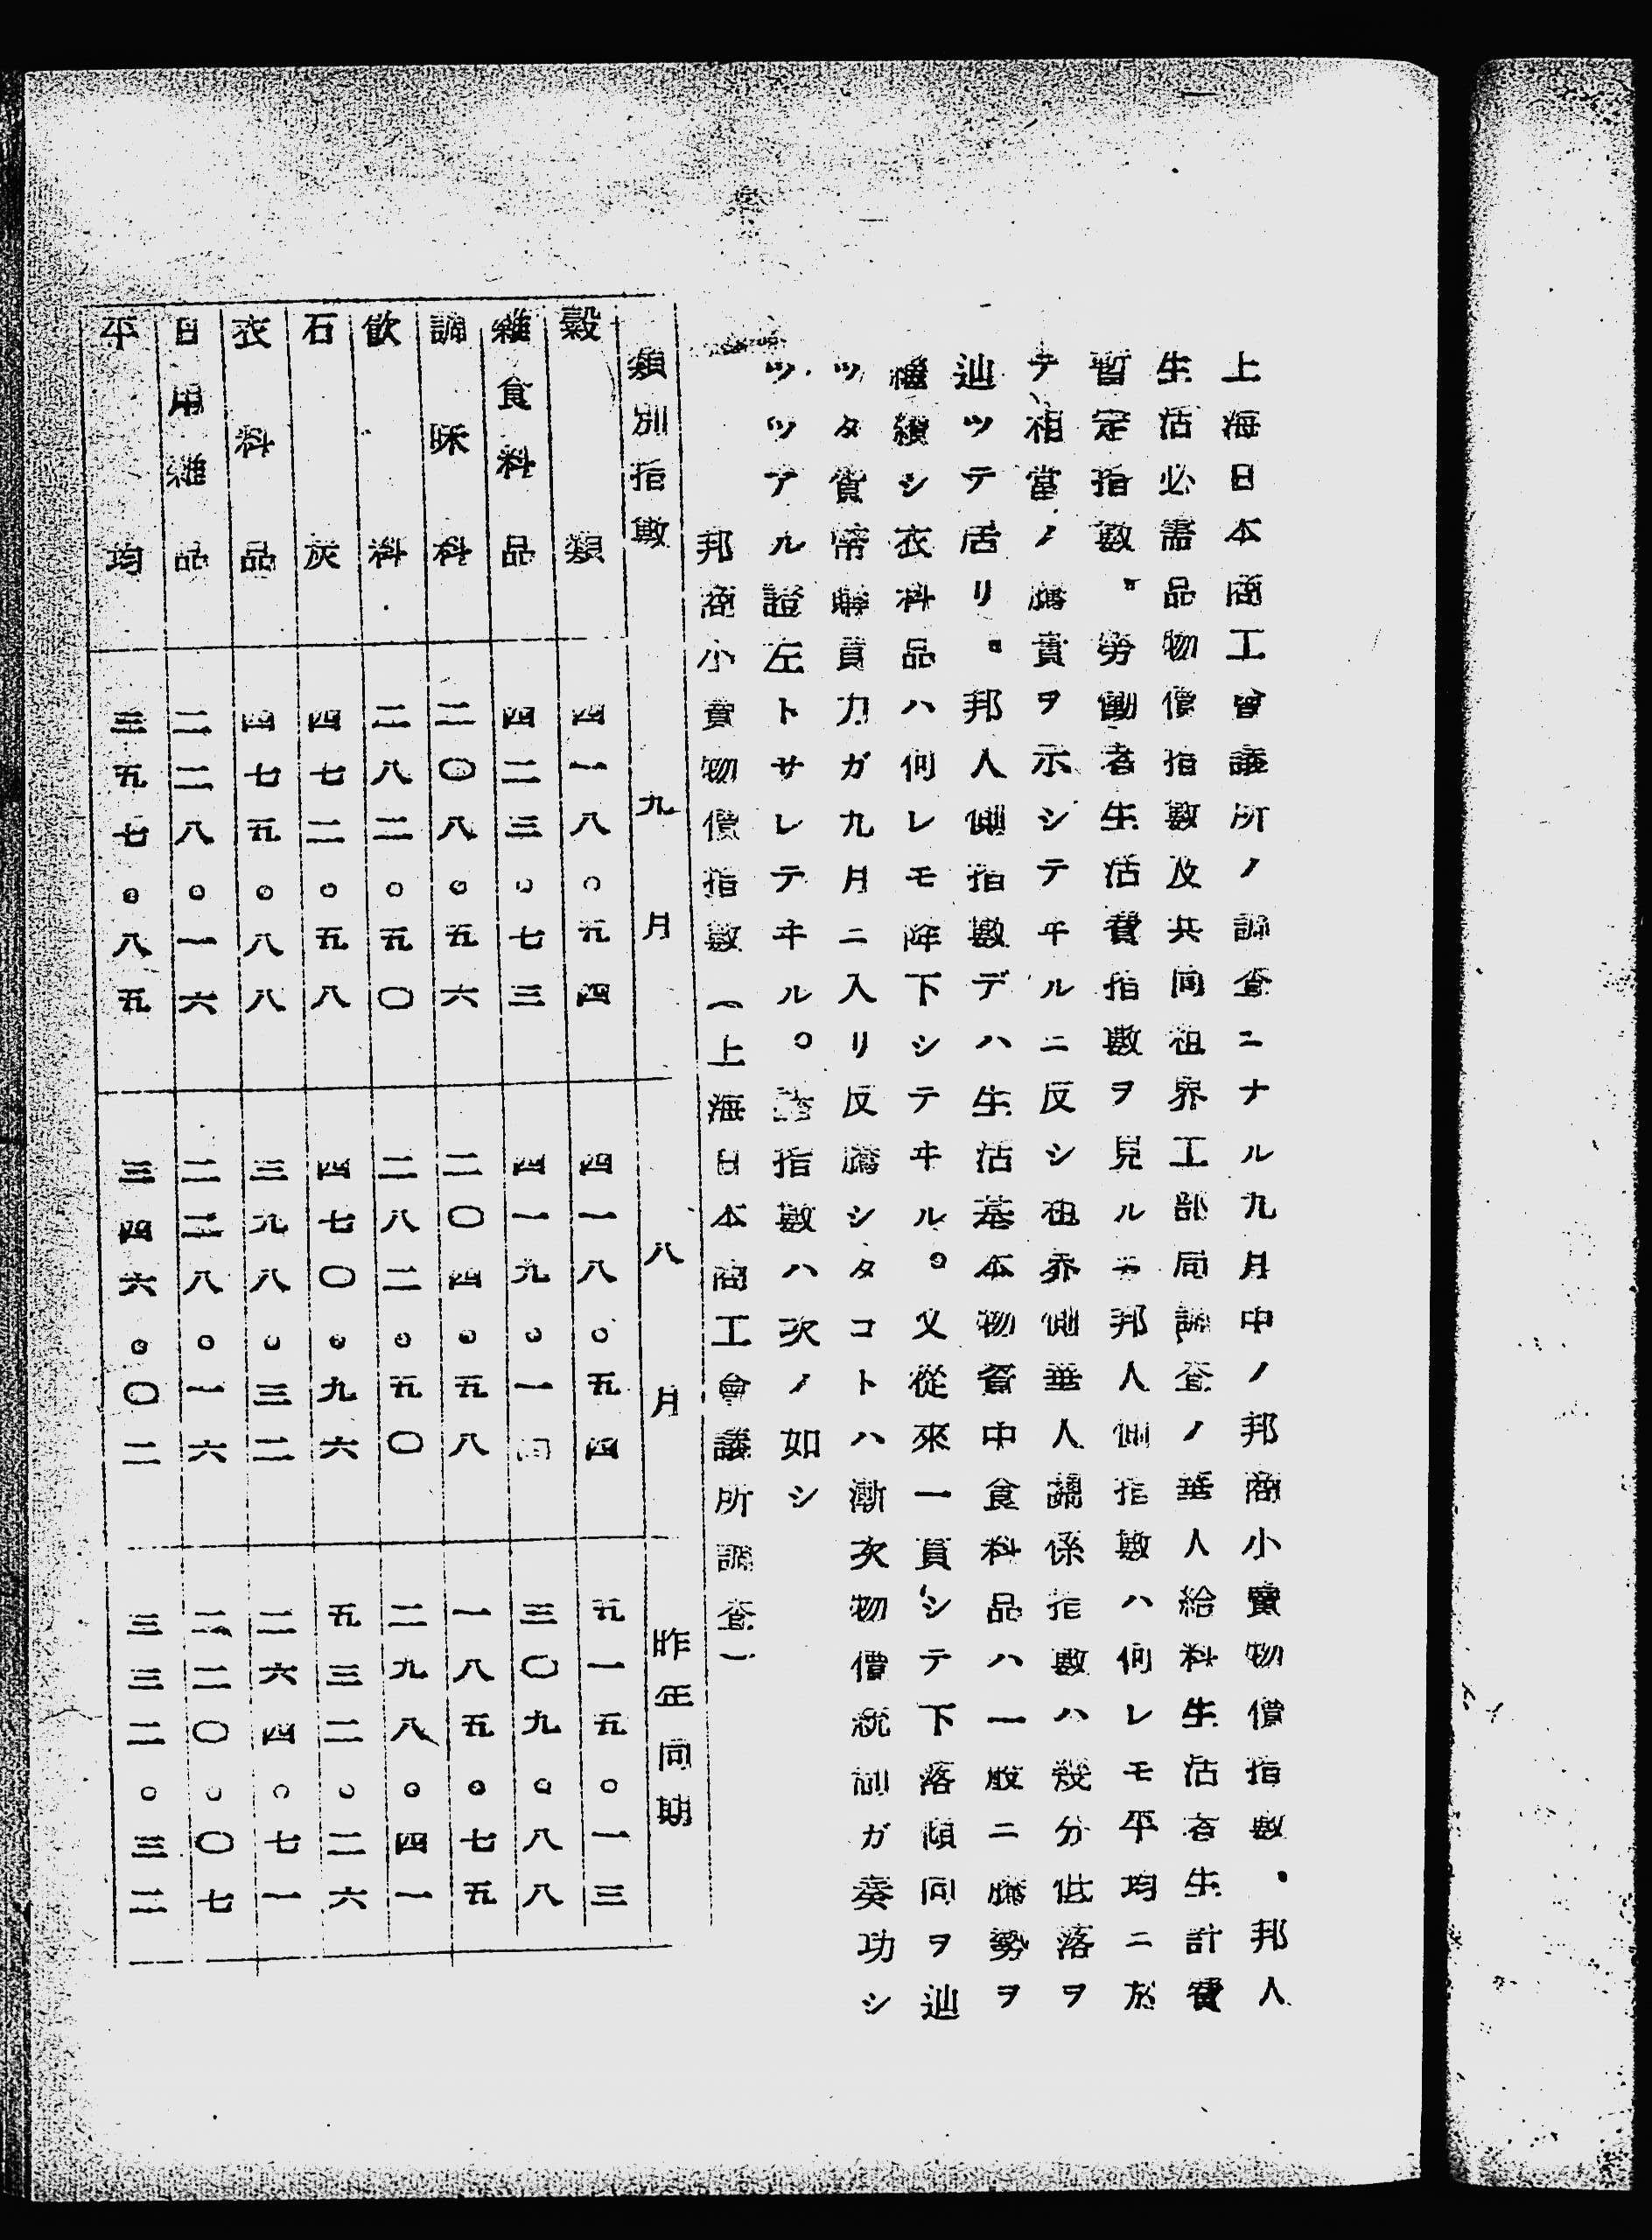 上海日本商工會議所ノ調査ニナル九月中ノ邦商小賣物價指數、邦人
生活必需品物價指數及共同租界工部局調査ノ華人給料生活者生計費
暫定指數、勞働者生活費指數ヲ見ルニ邦人側指數ハ何レモ平均ニ於
テ相當ノ騰貴ヲ示シテヰルニ反シ租界側華人關係指數ハ幾分低落ヲ
辿ツテ居リ、邦人側指數デハ生活基本物資中食料品ハ一般ニ騰勢ヲ
繼續シ衣料品ハ何レモ降下シテヰル。又從來一貫シテ下落傾向ヲ辿
ツタ貨幣購買力ガ九月ニ入リ反騰シタコトハ漸次物價統制ガ奏功シ
ツツアル證左トサレテヰル。諸指數ハ次ノ如シ
邦商小賣物價指數（上海日本商工會議所調査）
類別指數 九月 八月 昨年同期
穀類 四一八。五四 四一八。五四 五一五。一三
雜食料品 四二三。七三 四一九。一四 三〇九。八八
調味料 二〇八。五六 二〇四。五八 一八五。七五
飮料 二八二。五〇 二八二。五〇 二九八。四一
石灰 四七二。五八 四七〇。九六 五三二。二六
衣料品 四七五。八八 三九八。三二 二六四。七一
日用雜品 二二八。一六 二二八。一六 二二〇。〇七
平均 三五七。八五 三四六。〇二 三三二。三二